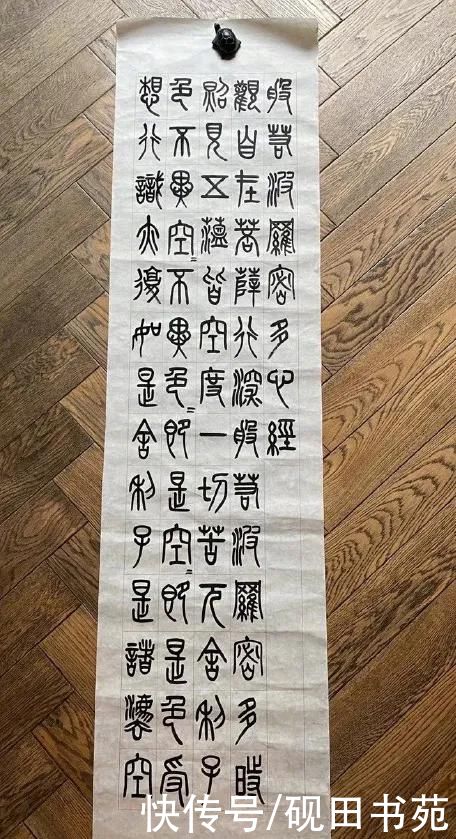 般若波羅密多心經
觀自在菩薩行深般若波羅密多時
照見五蘊皆空度一切苦厄舍利子
色不異空=不異色=即是空=即是色受
想行識亦復如是舍利子是諸法空
快传号/砚田书苑